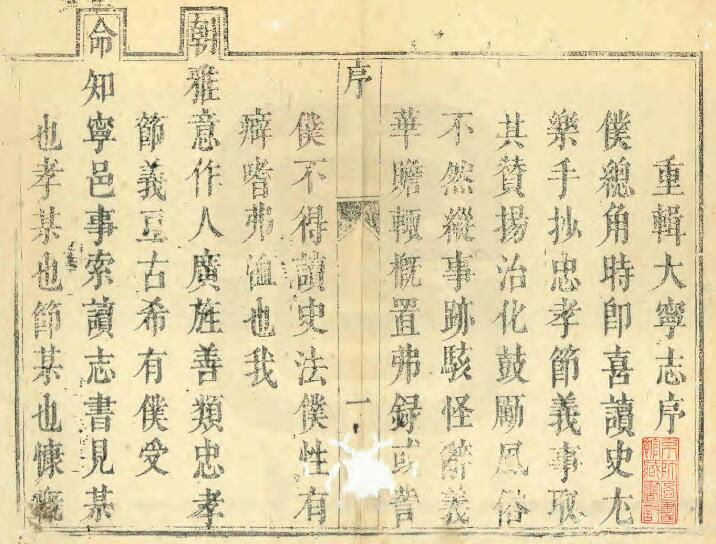 重輯大寧志序
僕總角時卽喜讀史尤
樂手抄忠孝節義事取
其贊揚治化鼓勵風俗
不然縱事跡駭怪辭義
華贍輙概置弗録或誚
序
一
僕不得讀史法僕性有
癖嗜弗恤也我
朝雅意作人廣旌善類忠孝
節義亘古希有僕受
命知寧邑事索讀志書見某
也孝某也節某也慷慨